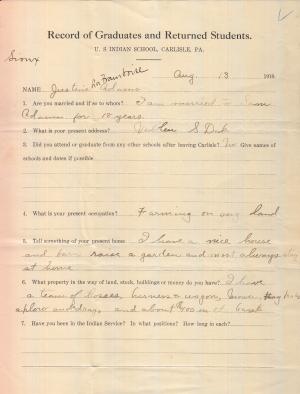 Record of Graduates and Returned Students.
U. S. INDIAN SCHOOL, CARLISLE, PA.
Sioux
Aug. 13 191
La Framboise
NAME Justine Adams
1. Are you married and if so to whom? I am married to Sam
Adams for 10 years
2. What is your present address? S Dak
3. Did you attend or graduate from any other schools after leaving Carlisle? No Give names of
schools and dates if possible
4. What is your present occupation? Farming on own land
5. Tell something of your present home I have a nice house
and barn raise a garden and most always stay
at home
6. What property in the way of land, stock, buildings or money do you have? I have
a team of horses, harness & wagon, mower, hay rake
a plow and drag, and about in bank
7. Have you been in the Indian Service? In what positions? How long in each?